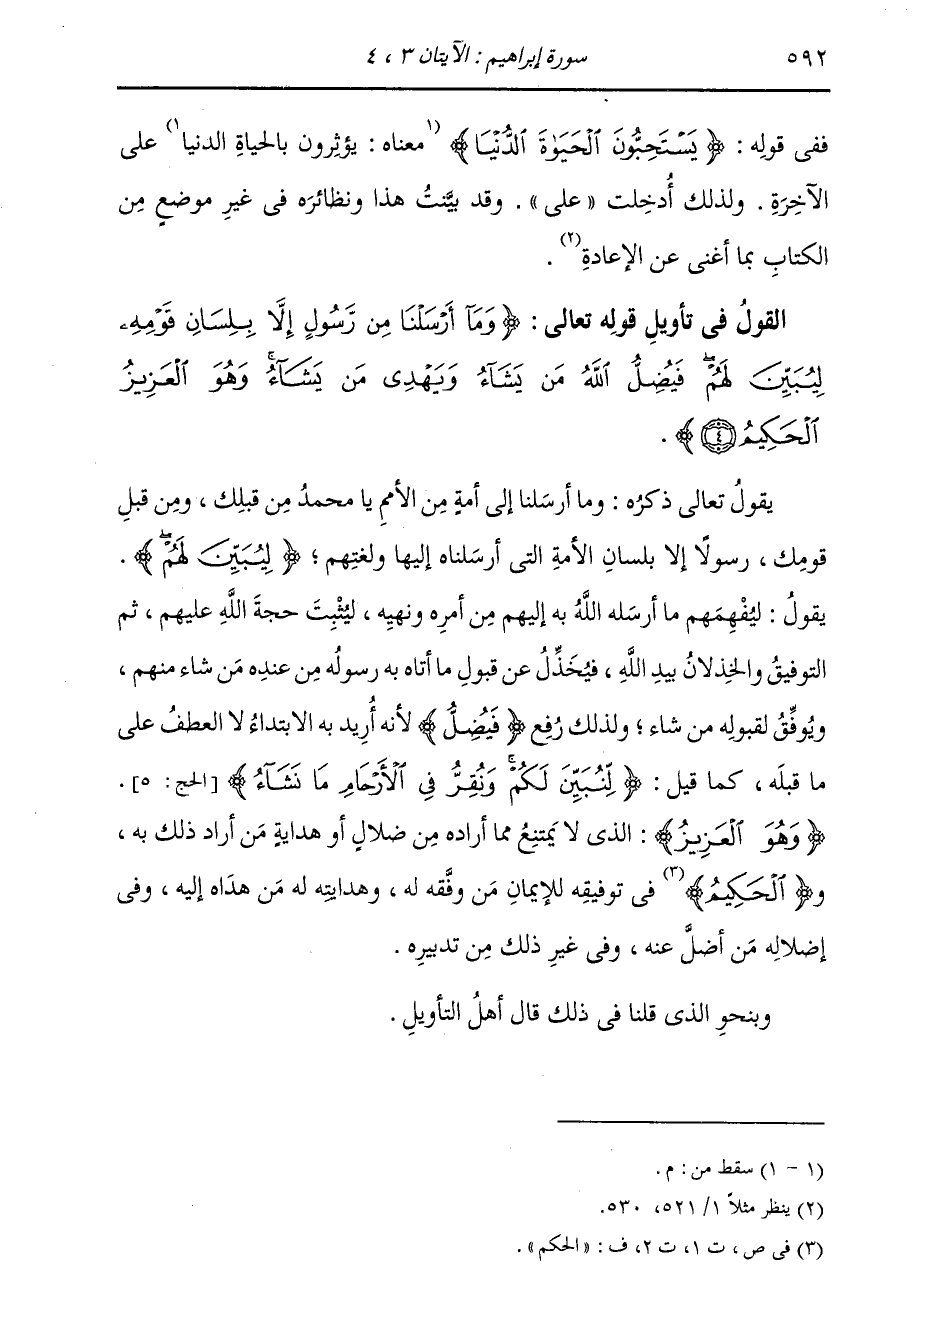 ٥٩٢ سورة إبراهيم : الآيتان ٣ ، ٤
ففى قولِه : ﴿ يَسْتَحِبُّونَ ٱلْحَيَوٰةَ ٱلدُّنْيَا ﴾ (١معناه : يؤثِرون بالحياةِ الدنيا١) على
الآخِرَةِ . ولذلك أُدخِلت «على» . وقد بيَّنتُ هذا ونظائرَه فى غيرِ موضعٍ مِن
الكتابِ بما أغنى عن الإعادةِ(٢) .
القولُ فى تأويلِ قولِه تعالى : ﴿ وَمَآ أَرْسَلْنَا مِن رَّسُولٍ إِلَّا بِلِسَانِ قَوْمِهِۦ
لِيُبَيِّنَ لَهُمْۖ فَيُضِلُّ ٱللَّهُ مَن يَشَآءُ وَيَهْدِى مَن يَشَآءُۚ وَهُوَ ٱلْعَزِيزُ
ٱلْحَكِيمُ ٤ ﴾ .
يقولُ تعالى ذكرُه : وما أرسَلنا إلى أمةٍ مِن الأممِ يا محمدُ مِن قبلِك ، ومِن قبلِ
قومِك ، رسولًا إلا بلسانِ الأمةِ التى أرسَلناه إليها ولغتِهم ؛ ﴿ لِيُبَيِّنَ لَهُمْۖ ﴾ .
يقولُ : ليُفْهِمَهم ما أرسَله اللَّهُ به إليهم مِن أمرِه ونهيِه ، ليُثْبِتَ حجةَ اللَّهِ عليهم ، ثم
التوفيقُ والخِذلانُ بيدِ اللَّهِ ، فيُخَذِّلُ عن قبولِ ما أتاه به رسولُه مِن عندِه مَن شاء منهم ،
ويُوفِّقُ لقبولِه من شاء ؛ ولذلك رُفِع ﴿ فَيُضِلُّ ﴾ لأنه أُرِيد به الابتداءُ لا العطفُ على
ما قبلَه ، كما قيل : ﴿ لِّنُبَيِّنَ لَكُمْۚ وَنُقِرُّ فِى ٱلْأَرْحَامِ مَا نَشَآءُ ﴾ [الحج : ٥] .
﴿ وَهُوَ ٱلْعَزِيزُ ﴾ : الذى لا يَمتنِعُ مما أراده مِن ضلالٍ أو هدايةٍ مَن أراد ذلك به ،
و﴿ ٱلْحَكِيمُ ﴾(٣) فى توفيقِه للإيمانِ مَن وفَّقه له ، وهدايتِه له مَن هدَاه إليه ، وفى
إضلالِه مَن أضلَّ عنه ، وفى غيرِ ذلك مِن تدبيرِه .
وبنحوِ الذى قلنا فى ذلك قال أهلُ التأويلِ .
(١ - ١) سقط من : م .
(٢) ينظر مثلاً ١/ ٥٢١، ٥٣٠.
(٣) فى ص ، ت ١، ت ٢، ف : «الحكم» .